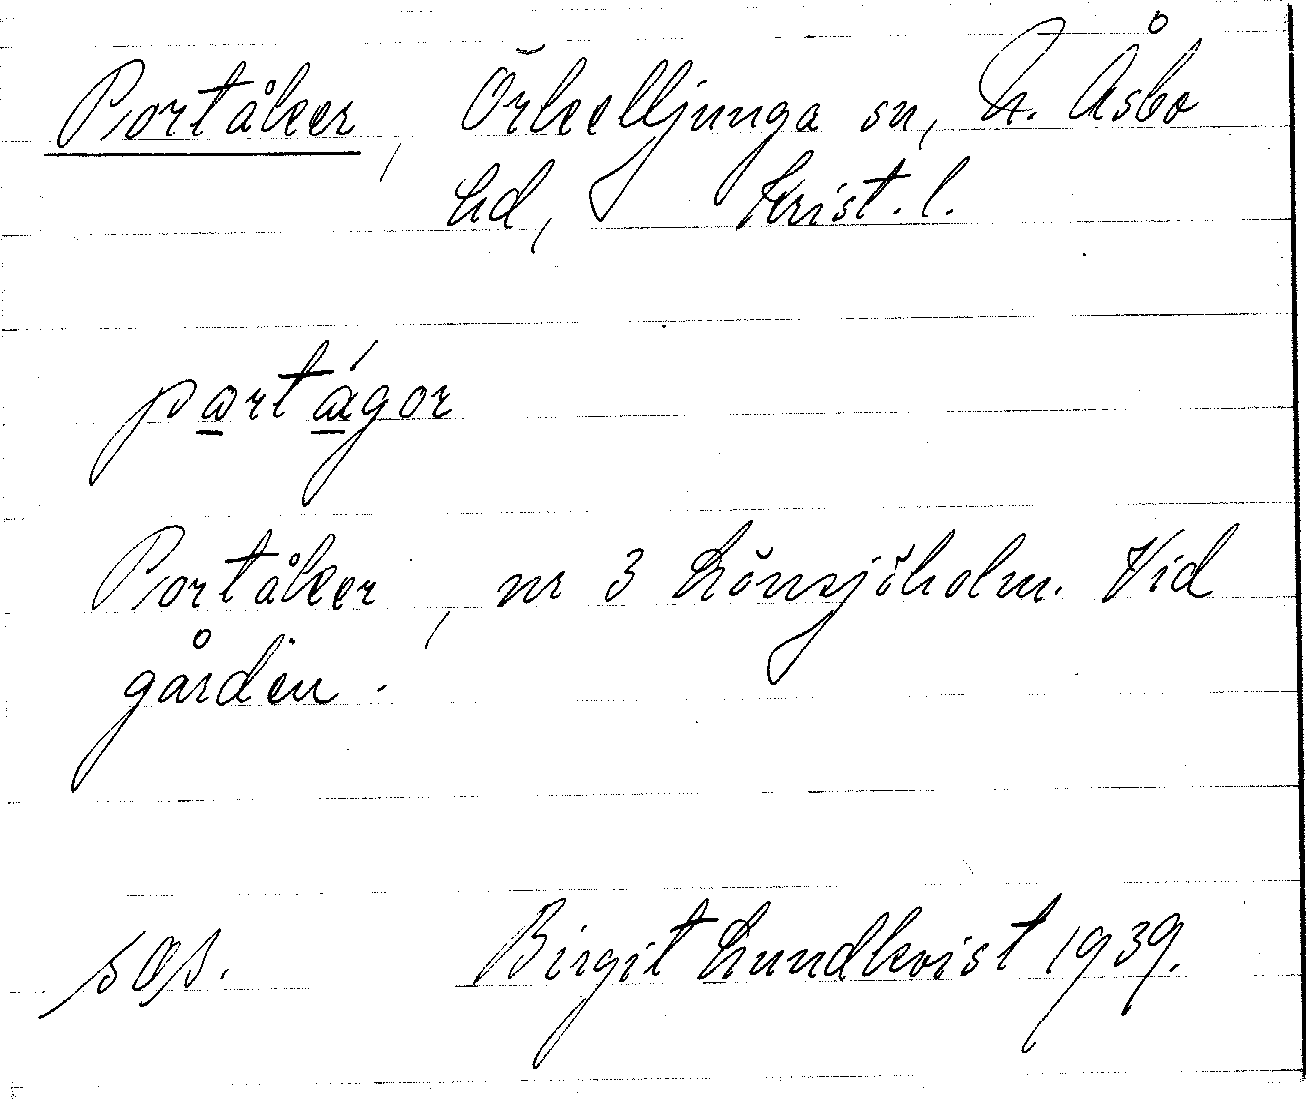 Portåker, Örkelljunga sn, N. Åsbo
hd, Krist. l.
partágor
Portåker, nr 3 Lönsjöholm. Vid
gården.
sas. Birgit Lundkvist 1939.